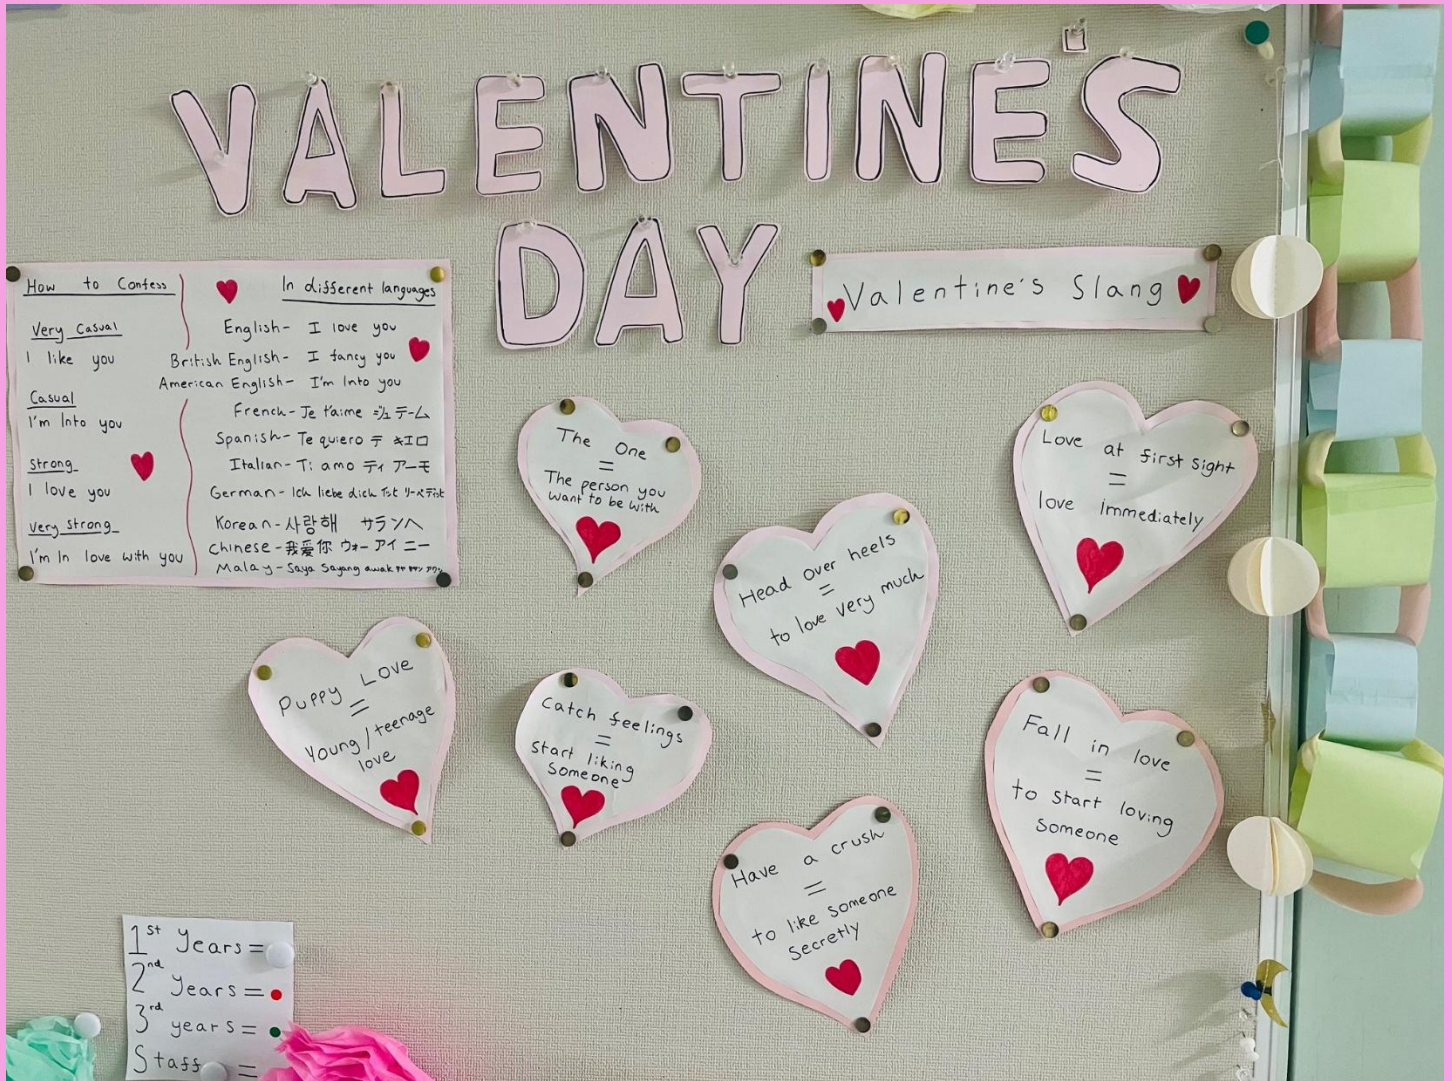 VALENTINE'S
DAY
How to Confess
Very Casual
I like you
Casual
I'm Into you
Strong
I love you
Very strong
I'm In love with you
In different languages
English- I love you
British English- I fancy you
American English- I'm Into you
French- Je t'aime ジュ テーム
Spanish- Te quiero テ キエロ
Italian- Ti amo ティ アーモ
German- Ich liebe dich
Korean- 사랑해 サランヘ
Chinese- 我爱你 ウォー アイ ニー
Malay- Saya Sayang awak
Valentine's Slang
The One
=
The person you
want to be with
Love at first sight
=
love immediately
Head over heels
=
to love very much
Puppy Love
=
Young/teenage
love
Catch feelings
=
start liking
someone
Fall in love
=
to start loving
someone
Have a crush
=
to like someone
secretly
1st Years=
2nd Years=
3rd years=
Staff =